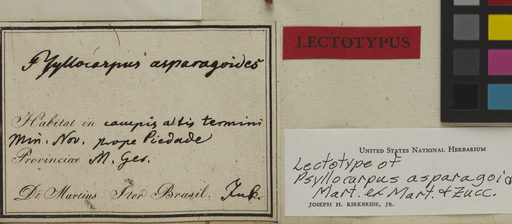 Psyllocarpus asparagoides
Habitat in campis altis termini
Min. Nov. prope Piedade
Provinciae M. Ger.
Dr Martius Iter Brasil. Jul.
LECTOTYPUS
UNITED STATES NATIONAL HERBARIUM
Lectotype of
Psyllocarpus asparagoid
Mart. ex Mart. & Zucc.
JOSEPH H. KIRKBRIDE, JR.